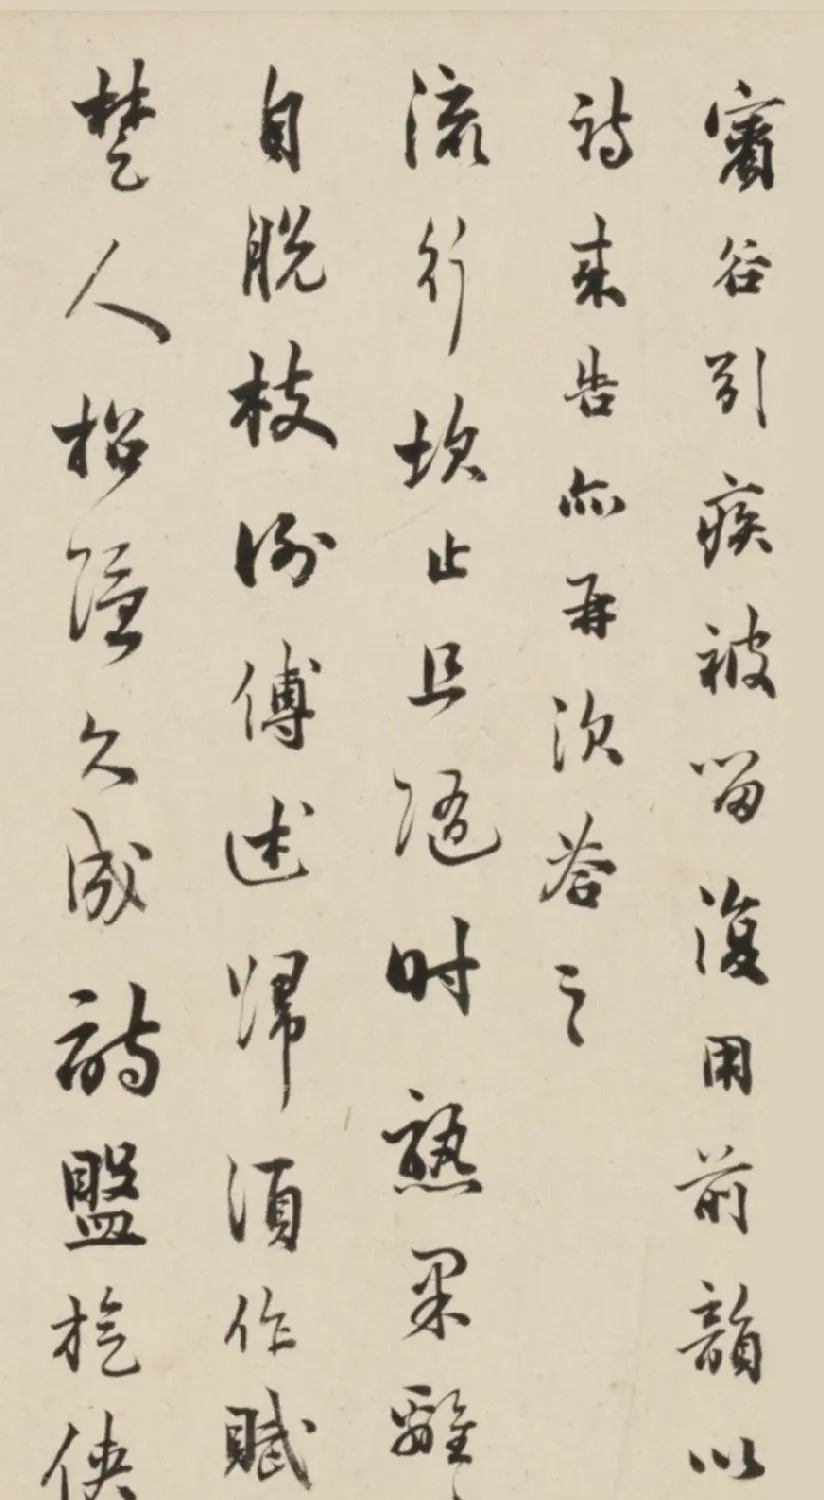 賓谷引疾被留復用前韻以
詩來告亦再次答之
流行坎止且隨時熟果離
自脫枝例傅述歸須作賦
楚人招隱久成詩盟於俠